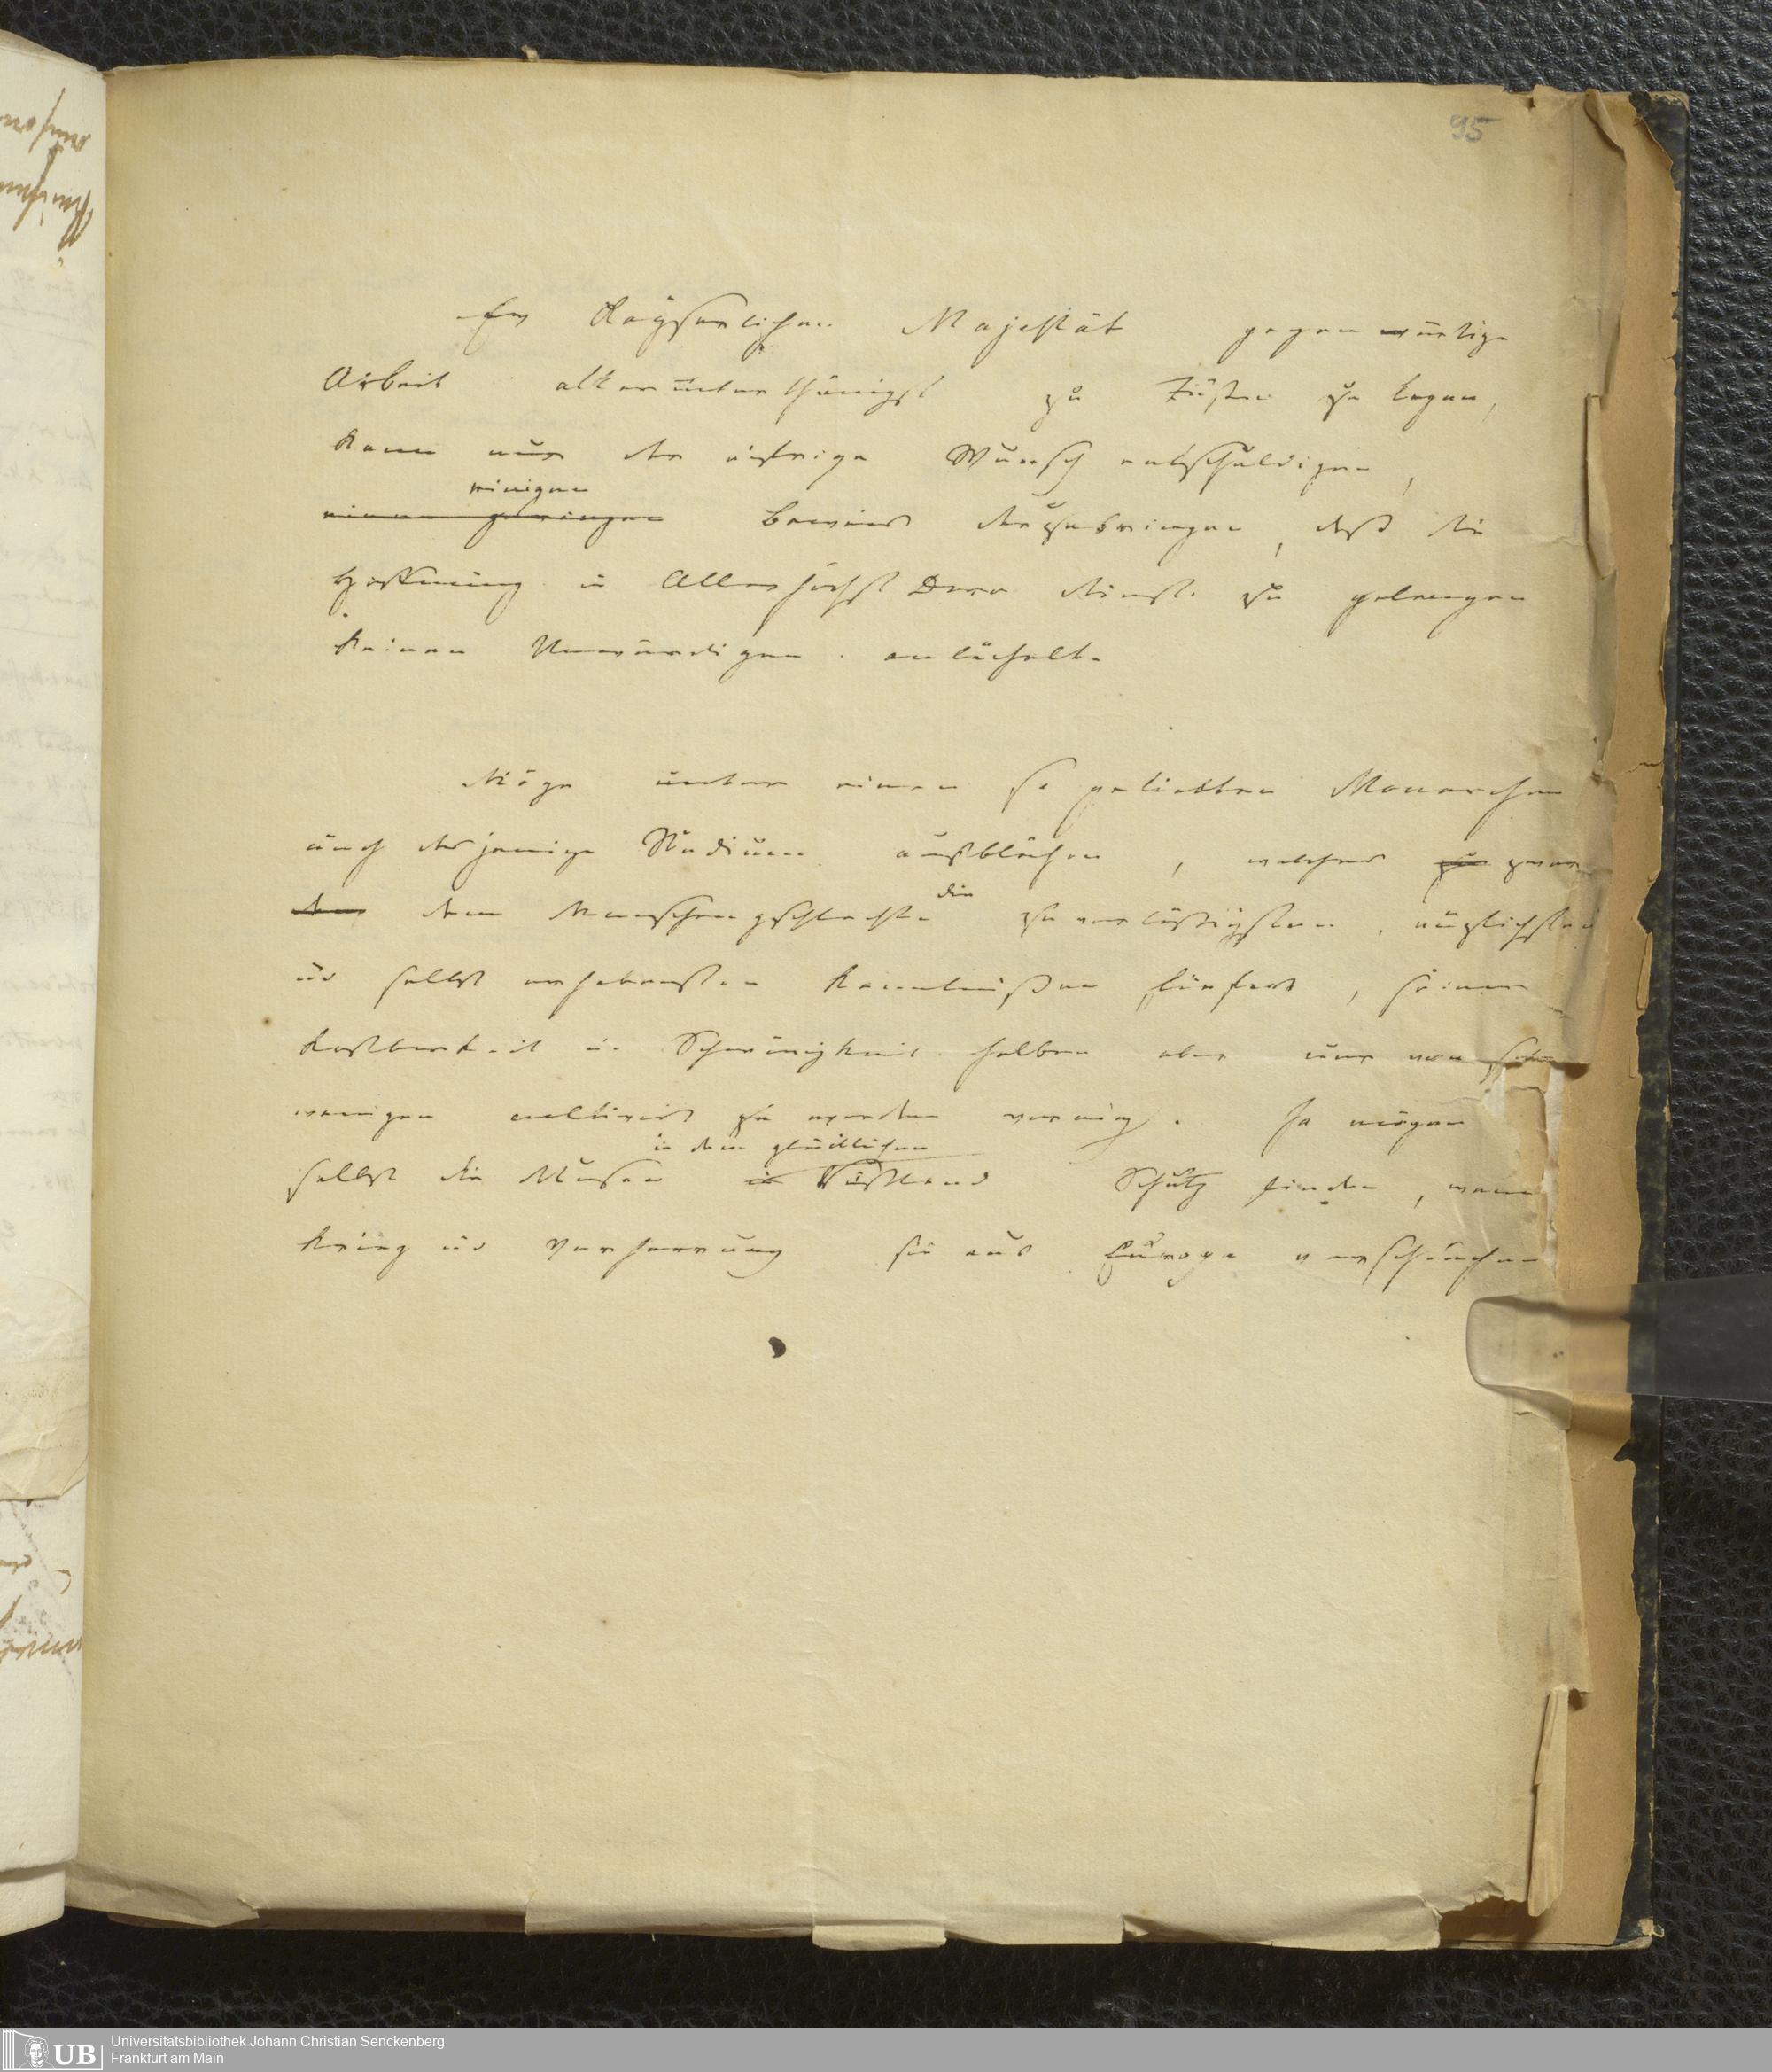 95
Ew Kayserlichen Majestät gegenwärtige
Arbeit allerunterthänigst zu Füßen zu legen,
kann nur der eifrige Wunsch entschuldigen,
einigen
einen geringen Beweis darzubringen, daß die
Hoffnung in Allerhöchst Dero Dienste zu gelangen
keinen Unwürdigen anlächelt.
Möge unter einem so geliebten Monarchen
auch dasjenige Studium aufblühen, welches zu zwar
die
dem Menschengeschlechte zuverläßigsten, nüzlichsten
und selbst erhabensten Kenntnißen liefert, seiner
Kostbarkeit u. Schwierigkeit halben aber nur von sehr
wenigen cultivirt zu werden vermag. Ja mögen
in dem glücklichen
selbst die Musen in Rußland Schutz finden, wenn
Krieg und Verheerung sie aus Europa verscheuchen
UB
Universitätsbibliothek Johann Christian Senckenberg
Frankfurt am Main